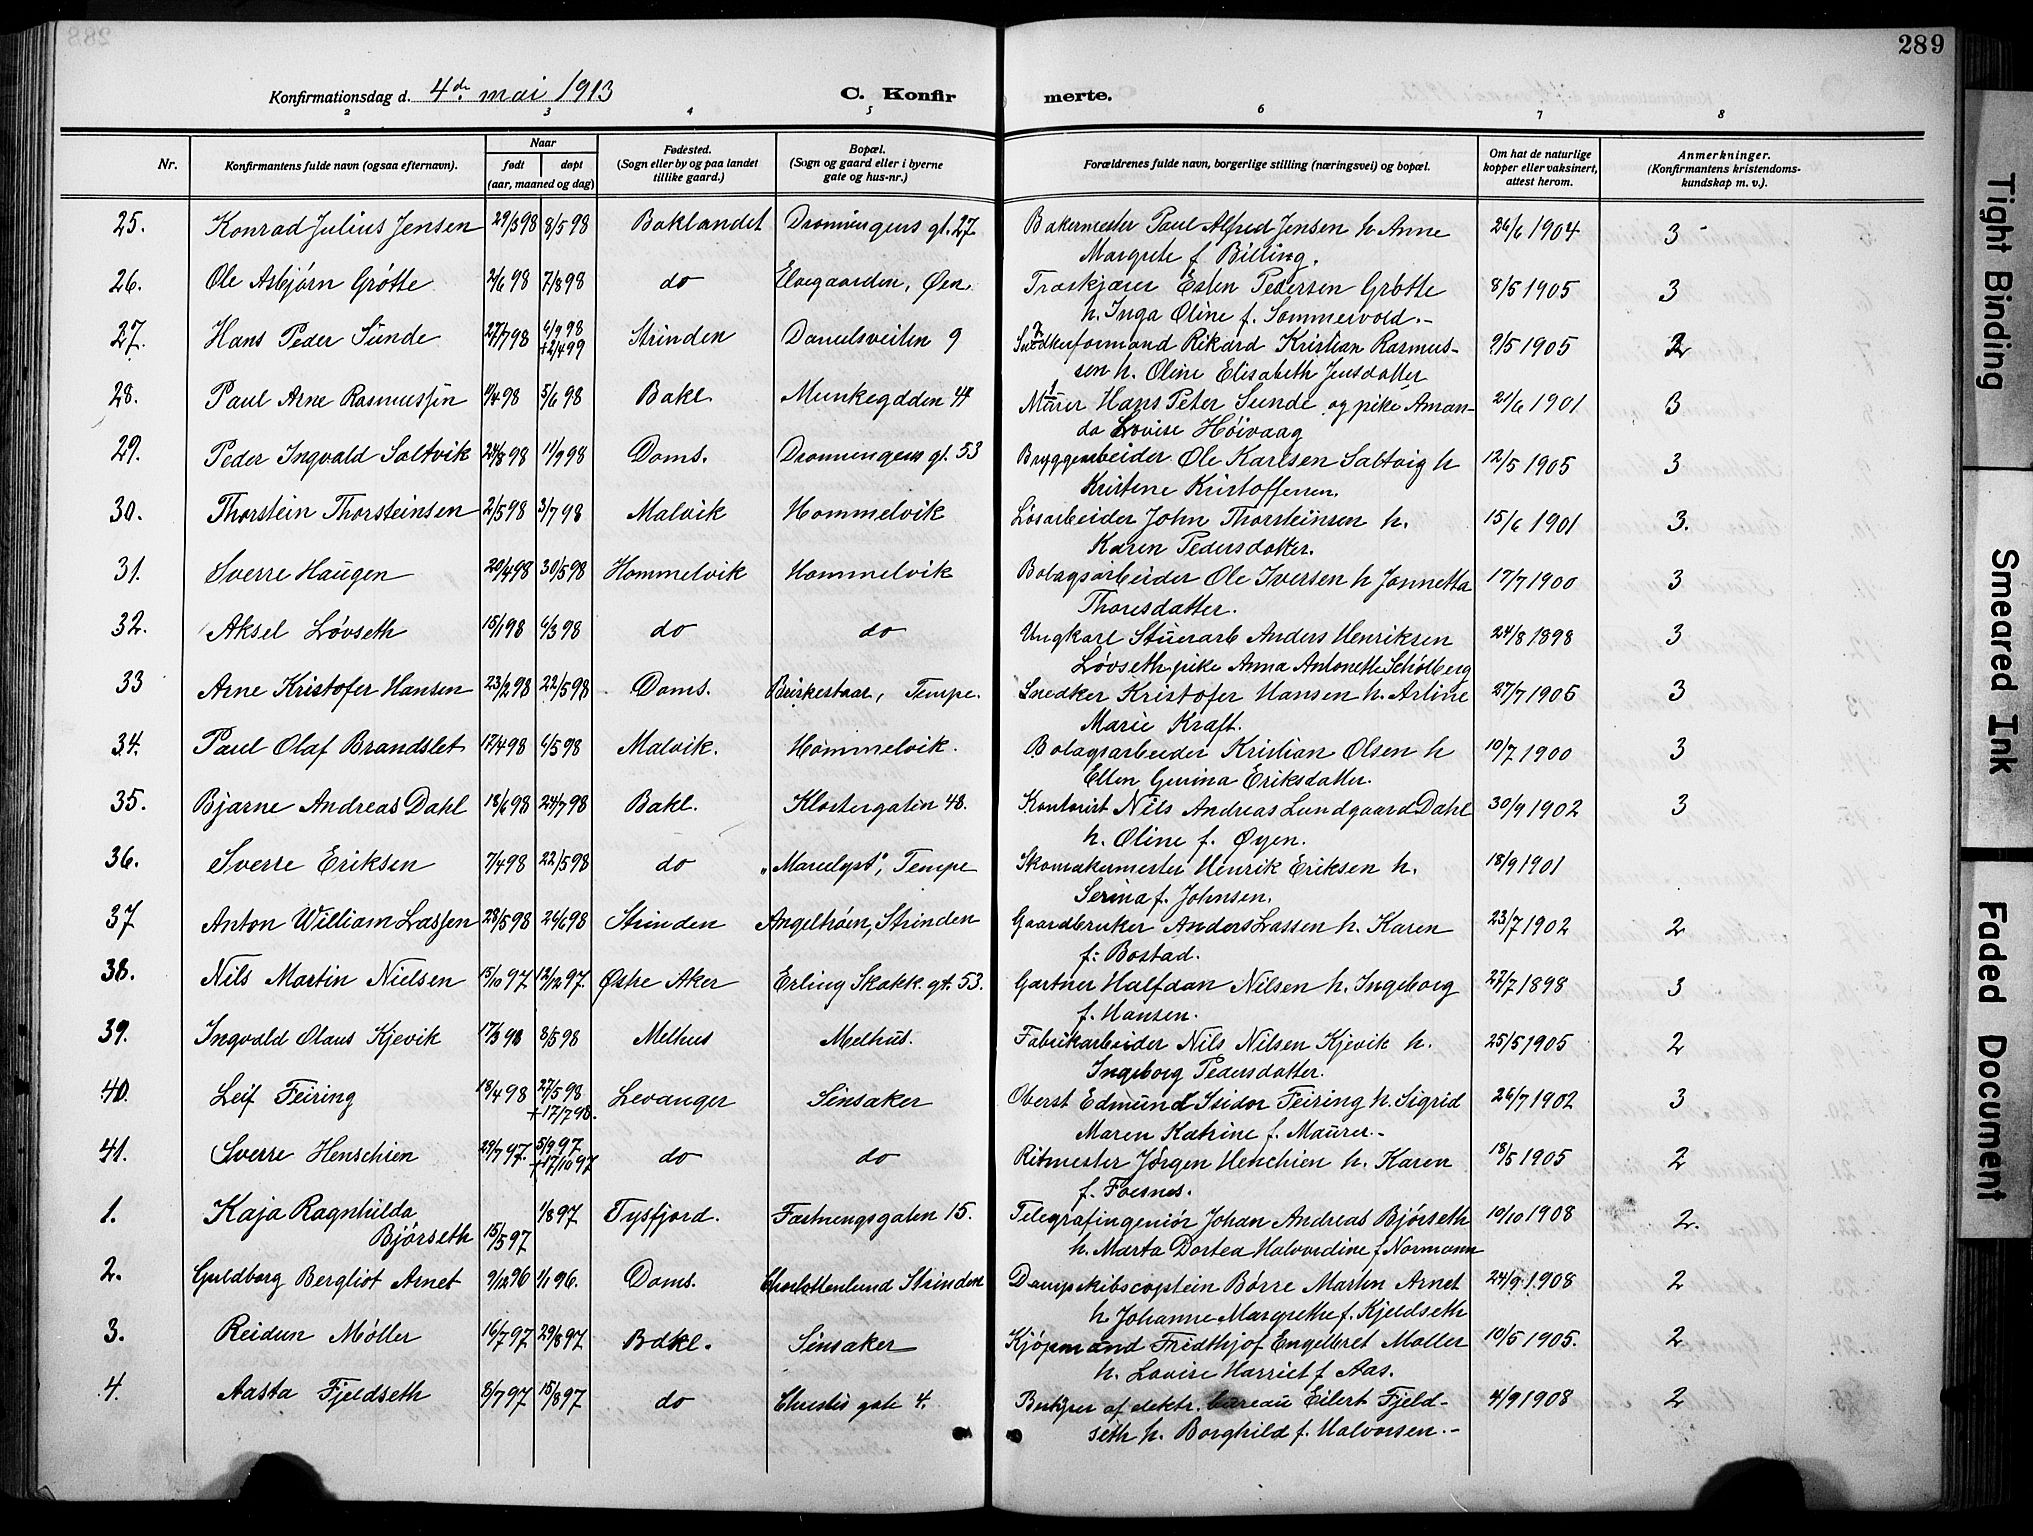 289
Konfirmationsdag d. 4de mai 1913 C. Konfirmerte.
2 3 4 5 6 7 8
Nr. Konfirmantens fulde navn (ogsaa efternavn). Naar født døpt (aar, maaned og dag) Fødested. (Sogn eller by og paa landet tillike gaard.) Bopæl. (Sogn og gaard eller i byerne gate og hus-nr.) Forældrenes fulde navn, borgerlige stilling (næringsvei) og bopæl. Om hat de naturlige kopper eller vaksinert, attest herom. Anmerkninger. (Konfirmantens kristendomskundskap m. v.).
25. Konrad Julius Jensen 29/3 98 8/5 98 Baklandet Dronningens gt. 27. Bakermester Paul Alfred Jensen h Anne 26/6 1904 3
Margrete f Billing.
26. Ole Asbjørn Grøtte 2/6 98 7/8 98 do Elvegaarden, Øen. Træskjærer Esten Pedersen Grøtte 8/5 1905 3
h. Inga Oline f. Sommervold.-
27. Hans Peder Sunde 27/7 98 4/9 98 +2/4 99 Strinden Danielsveiten 9 2 Snedkerformand Rikard Kristian Rasmus- 2/5 1905 2
sen h. Oline Elisabeth Jensdatter
28. Paul Arne Rasmussen 4/4 98 5/6 98 Bakl. Munkegaden 4 1 Murer Hans Peter Sunde og pike Aman- 21/6 1901 3
da Lovise Høivaag
29. Peder Ingvald Saltvik 24/8 98 11/9 98 Doms. Dronningens gt. 53 Bryggearbeider Ole Karlsen Saltvig h 12/5 1905 3
Kristine Kristoffersen.
30. Thorstein Thorsteinsen 2/5 98 3/7 98 Malvik Hommelvik Løsarbeider John Thorsteinsen h. 15/6 1901 3.
Karen Pedersdatter.
31. Sverre Haugen 20/4 98 30/5 98 Hommelvik Hommelvik Bolagsarbeider Ole Iversen h Jonnetta 17/7 1900 3
Thoresdatter.
32. Aksel Løvseth 15/1 98 6/3 98 do do Ungkarl Stuerarb Anders Henriksen 24/8 1898 3
Løvseth pike Anna Antonette Schølberg
33 Arne Kristofer Hansen 23/2 98 22/5 98 Doms. Birkestaar, Tempe. Snedker Kristofer Hansen h. Arline 27/7 1905 3
Marie Kraft.
34. Paul Olaf Brandslet 17/4 98 6/5 98 Malvik. Hommelvik. Bolagsarbeider Kristian Olsen h 10/7 1900 3
Ellen Gurina Eriksdatter.
35. Bjarne Andreas Dahl 18/6 98 24/7 98 Bakl. Klostergaten 48. Kontorist Nils Andreas Lundgaard Dahl 30/9 1902 3
h. Oline f. Øyen.
36. Sverre Eriksen 7/4 98 22/5 98 do "Marielyst", Tempe Skomakermester Henrik Eriksen h. 18/9 1901
Serina f. Johnsen.
37 Anton William Lassen 28/5 98 26/6 98 Strinden Angeltrøen, Strinden Gaardbruker Anders Lassen h. Karen 23/7 1902 2
f: Bostad.
38. Nils Martin Nielsen 15/10 97 12/12 97. Østre Aker Erling Skakk. gt. 53. Gartner Halfdan Nilsen h. Ingeborg 27/7 1898 3
f. Hansen.
39. Ingvald Olaus Kjevik 17/3 98 8/5 98 Melhus Melhus. Fabrikarbeider Nils Nilsen Kjevik h. 25/5 1905 2
Ingeborg Pedersdatter.
40. Leif Feiring 18/4 98 27/5 98 +17/7 98. Levanger Sinsaker Oberst Edmund Isidor Feiring h. Sigrid 26/7 1902 3
Maren Katrine f. Maurer.-
41. Sverre Henschien 29/7 97. 5/9 97 +17/10 97 do do Ritmester Jørgen Henchien h. Karen 18/5 1905 2
f. Foesnes.
1. Kaja Ragnhilda 1/8 97 Tysfjord. Fæstningsgaten 15. Telegrafingeniør Johan Andreas Bjørseth 10/10 1908 2.
Bjørseth 15/5 97 h. Marta Dortea Halvordine f. Normann
2. Guldborg Bergliot Arnet 9/12 96 1/1 96. Doms. Charlottenlund Strinden Dampskibscaptein Børre Martin Arnet 24/9 1908 2
h Johanne Margrethe f. Kjeldseth
3. Reidun Møller 16/7 97 29/8 97 Bakl. Sinsaker Kjøpmand Fredthjof Engelbret Møller 10/5 1905. 2
h. Lovise Harriet f Aas.
4. Aasta Fjeldseth 8/7 97 15/8 97 do Christis gate 4. Bestyrer af elektr. bureau Eilert Fjeld- 4/9 1908 2
seth h. Borghild f. Halvorsen.-
Tight Binding
Smeared Ink
Faded Document